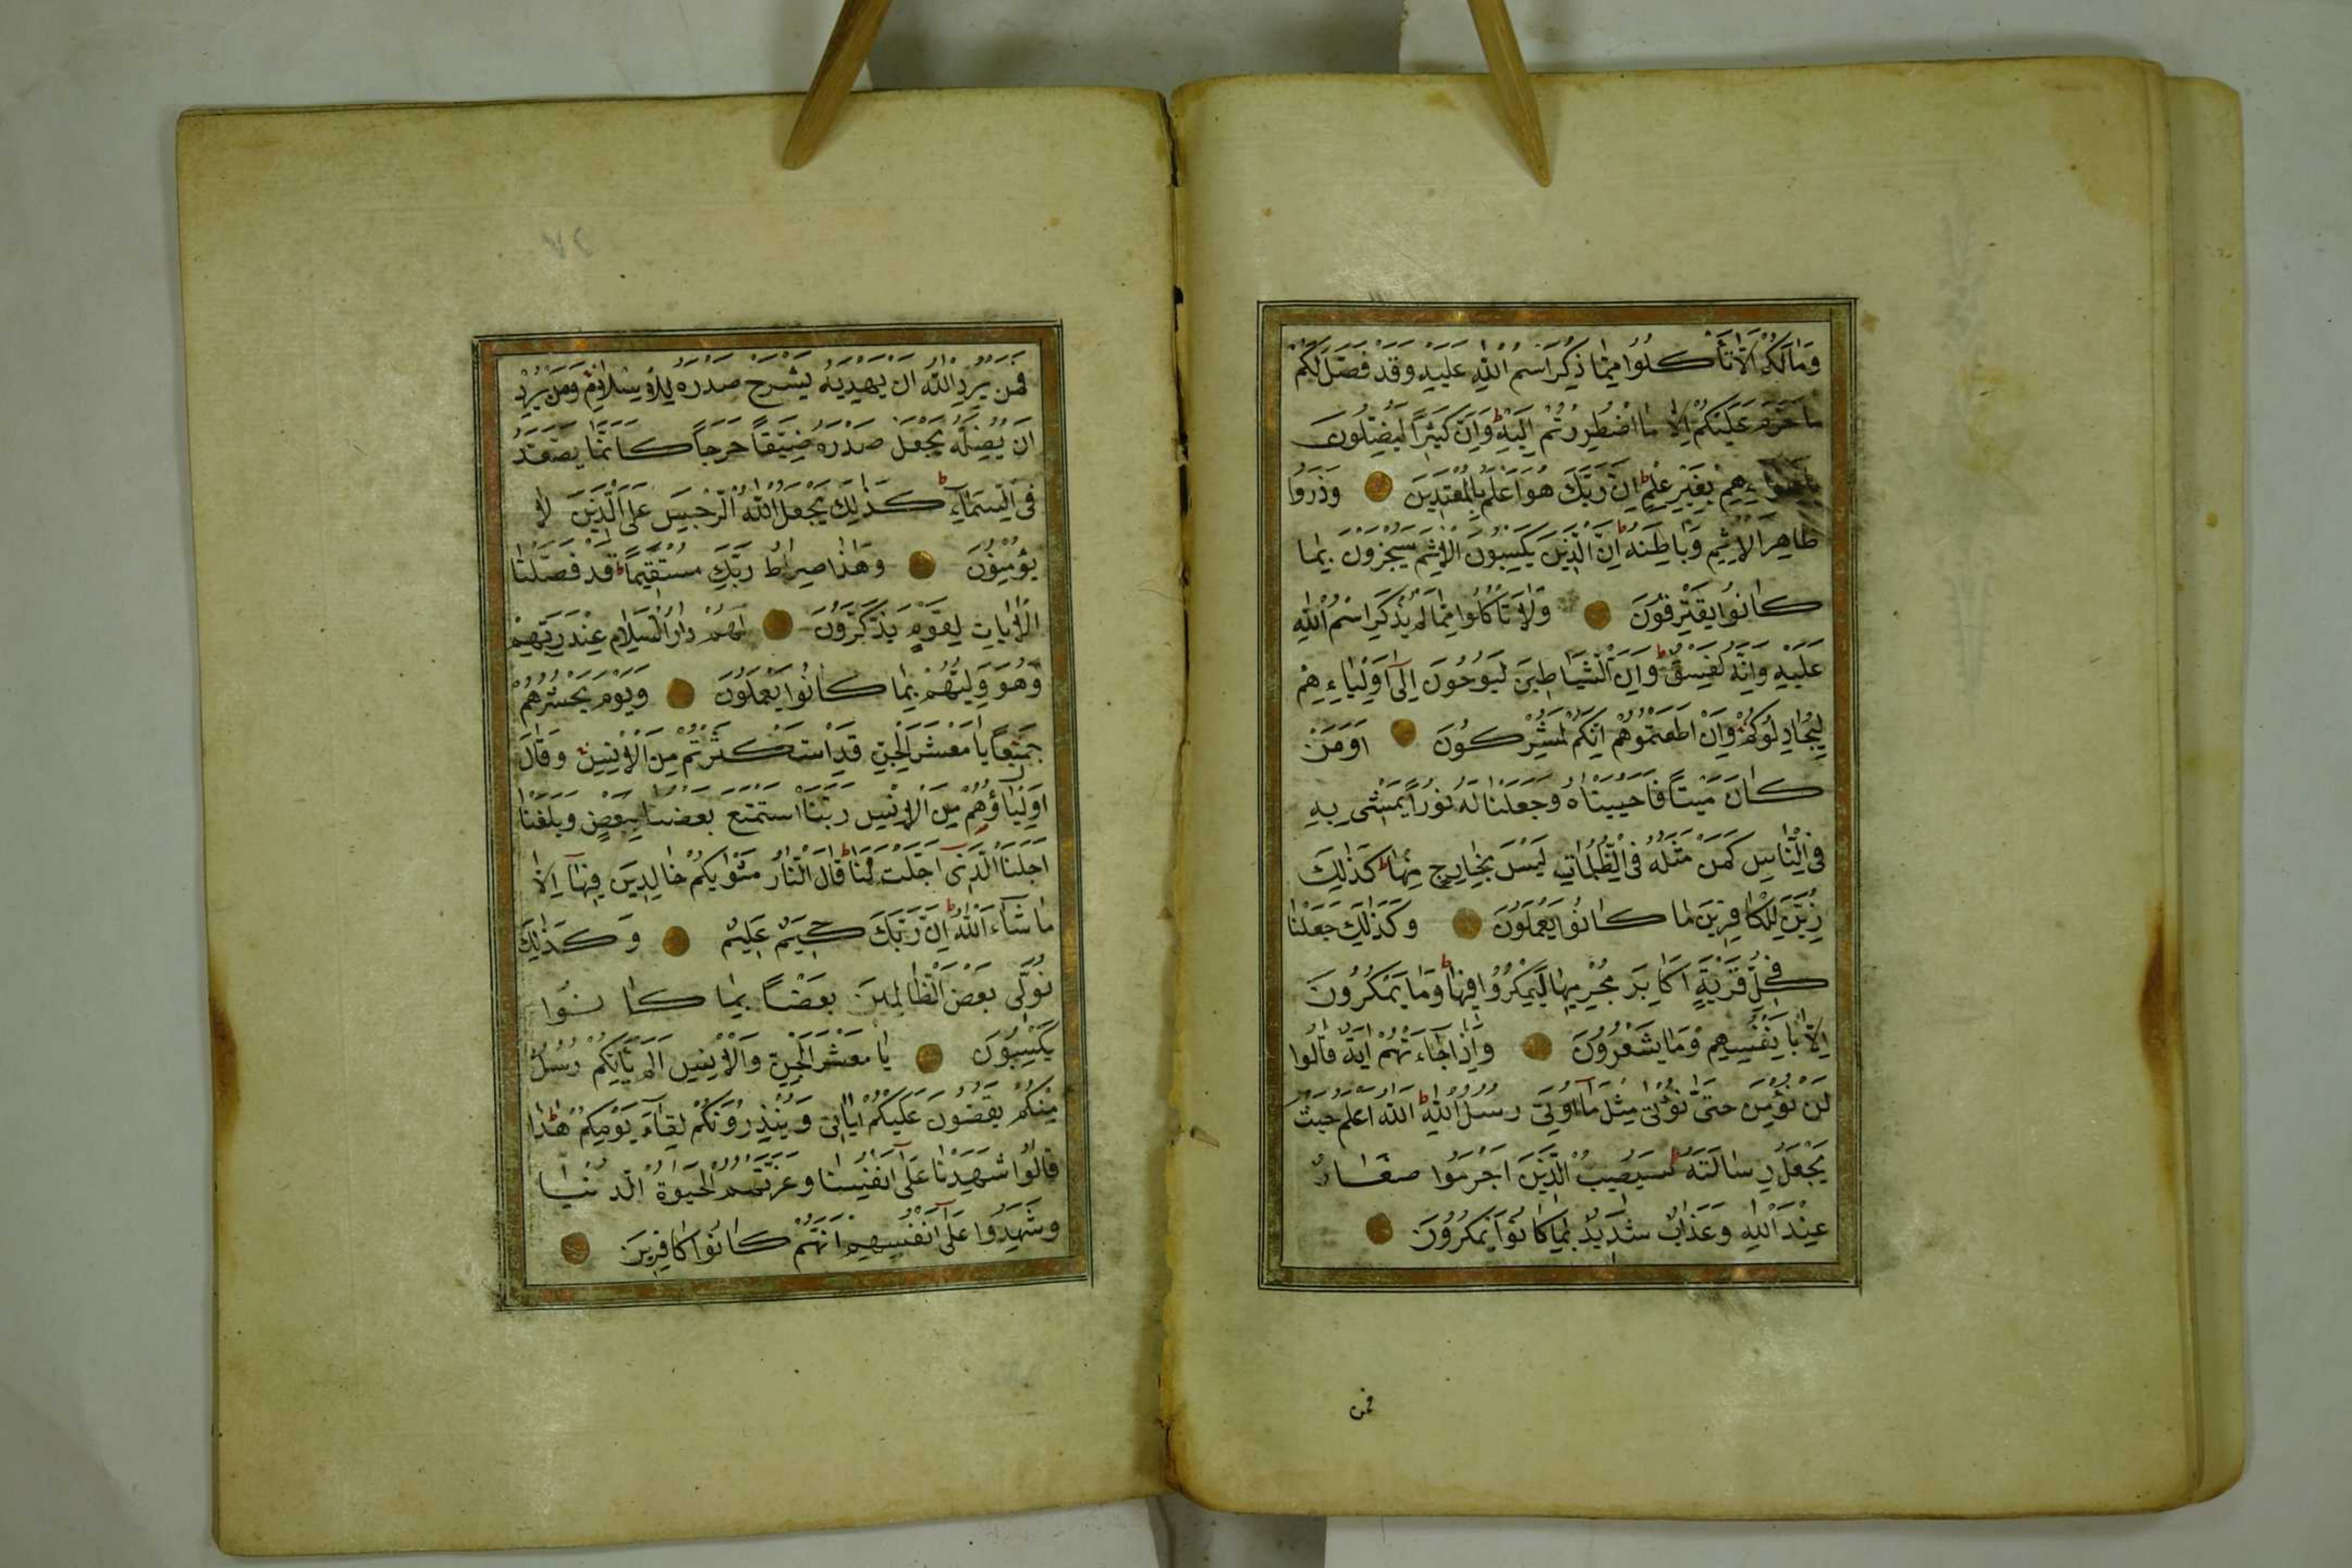 وَمَا لَكُمْ اَلَّا تَأْكُلُوا مِمَّا ذُكِرَ اسْمُ اللّٰهِ عَلَيْهِ وَقَدْ فَصَّلَ لَكُمْ
مَا حَرَّمَ عَلَيْكُمْ اِلَّا مَا اضْطُرِرْتُمْ اِلَيْهِ ط وَاِنَّ كَثِيرًا لَيُضِلُّونَ
بِاَهْوَاءِهِمْ بِغَيْرِ عِلْمٍ ط اِنَّ رَبَّكَ هُوَ اَعْلَمُ بِالْمُعْتَدِينَ وَذَرُوا
ظَاهِرَ الْاِثْمِ وَبَاطِنَهُ ط اِنَّ الَّذِينَ يَكْسِبُونَ الْاِثْمَ سَيُجْزَوْنَ بِمَا
كَانُوا يَقْتَرِفُونَ وَلَا تَأْكُلُوا مِمَّا لَمْ يُذْكَرِ اسْمُ اللّٰهِ
عَلَيْهِ وَاِنَّهُ لَفِسْقٌ ط وَاِنَّ الشَّيَاطِينَ لَيُوحُونَ اِلٰٓى اَوْلِيَاءِهِمْ
لِيُجَادِلُوكُمْ وَاِنْ اَطَعْتُمُوهُمْ اِنَّكُمْ لَمُشْرِكُونَ اَوَمَنْ
كَانَ مَيْتًا فَاَحْيَيْنَاهُ وَجَعَلْنَا لَهُ نُورًا يَمْشِى بِهِ
فِى النَّاسِ كَمَنْ مَثَلُهُ فِى الظُّلُمَاتِ لَيْسَ بِخَارِجٍ مِنْهَا ط كَذٰلِكَ
زُيِّنَ لِلْكَافِرِينَ مَا كَانُوا يَعْمَلُونَ وَكَذٰلِكَ جَعَلْنَا
فِى كُلِّ قَرْيَةٍ اَكَابِرَ مُجْرِمِيهَا لِيَمْكُرُوا فِيهَا ط وَمَا يَمْكُرُونَ
اِلَّا بِاَنْفُسِهِمْ وَمَا يَشْعُرُونَ وَاِذَا جَاءَتْهُمْ اٰيَةٌ قَالُوا
لَنْ نُؤْمِنَ حَتّٰى نُؤْتٰى مِثْلَ مَا اُوتِىَ رُسُلُ اللّٰهِ ط اَللّٰهُ اَعْلَمُ حَيْثُ
يَجْعَلُ رِسَالَتَهُ ط سَيُصِيبُ الَّذِينَ اَجْرَمُوا صَغَارٌ
عِنْدَ اللّٰهِ وَعَذَابٌ شَدِيدٌ بِمَا كَانُوا يَمْكُرُونَ
فمن
فَمَنْ يُرِدِ اللّٰهُ اَنْ يَهْدِيَهُ يَشْرَحْ صَدْرَهُ لِلْاِسْلَامِ وَمَنْ يُرِدْ
اَنْ يُضِلَّهُ يَجْعَلْ صَدْرَهُ ضَيِّقًا حَرَجًا كَاَنَّمَا يَصَّعَّدُ
فِى السَّمَاءِ ط كَذٰلِكَ يَجْعَلُ اللّٰهُ الرِّجْسَ عَلَى الَّذِينَ لَا
يُؤْمِنُونَ وَهٰذَا صِرَاطُ رَبِّكَ مُسْتَقِيمًا ط قَدْ فَصَّلْنَا
الْاٰيَاتِ لِقَوْمٍ يَذَّكَّرُونَ لَهُمْ دَارُ السَّلَامِ عِنْدَ رَبِّهِمْ
وَهُوَ وَلِيُّهُمْ بِمَا كَانُوا يَعْمَلُونَ وَيَوْمَ يَحْشُرُهُمْ
جَمِيعًا يَا مَعْشَرَ الْجِنِّ قَدِ اسْتَكْثَرْتُمْ مِنَ الْاِنْسِ وَقَالَ
اَوْلِيَاؤُهُمْ مِنَ الْاِنْسِ رَبَّنَا اسْتَمْتَعَ بَعْضُنَا بِبَعْضٍ وَبَلَغْنَا
اَجَلَنَا الَّذِى اَجَّلْتَ لَنَا ط قَالَ النَّارُ مَثْوٰيكُمْ خَالِدِينَ فِيهَا اِلَّا
مَا شَاءَ اللّٰهُ ط اِنَّ رَبَّكَ حَكِيمٌ عَلِيمٌ وَكَذٰلِكَ
نُوَلِّى بَعْضَ الظَّالِمِينَ بَعْضًا بِمَا كَانُوا
يَكْسِبُونَ يَا مَعْشَرَ الْجِنِّ وَالْاِنْسِ اَلَمْ يَأْتِكُمْ رُسُلٌ
مِنْكُمْ يَقُصُّونَ عَلَيْكُمْ اٰيَاتِى وَيُنْذِرُونَكُمْ لِقَاءَ يَوْمِكُمْ هٰذَا
قَالُوا شَهِدْنَا عَلٰى اَنْفُسِنَا وَغَرَّتْهُمُ الْحَيٰوةُ الدُّنْيَا
وَشَهِدُوا عَلٰى اَنْفُسِهِمْ اَنَّهُمْ كَانُوا كَافِرِينَ